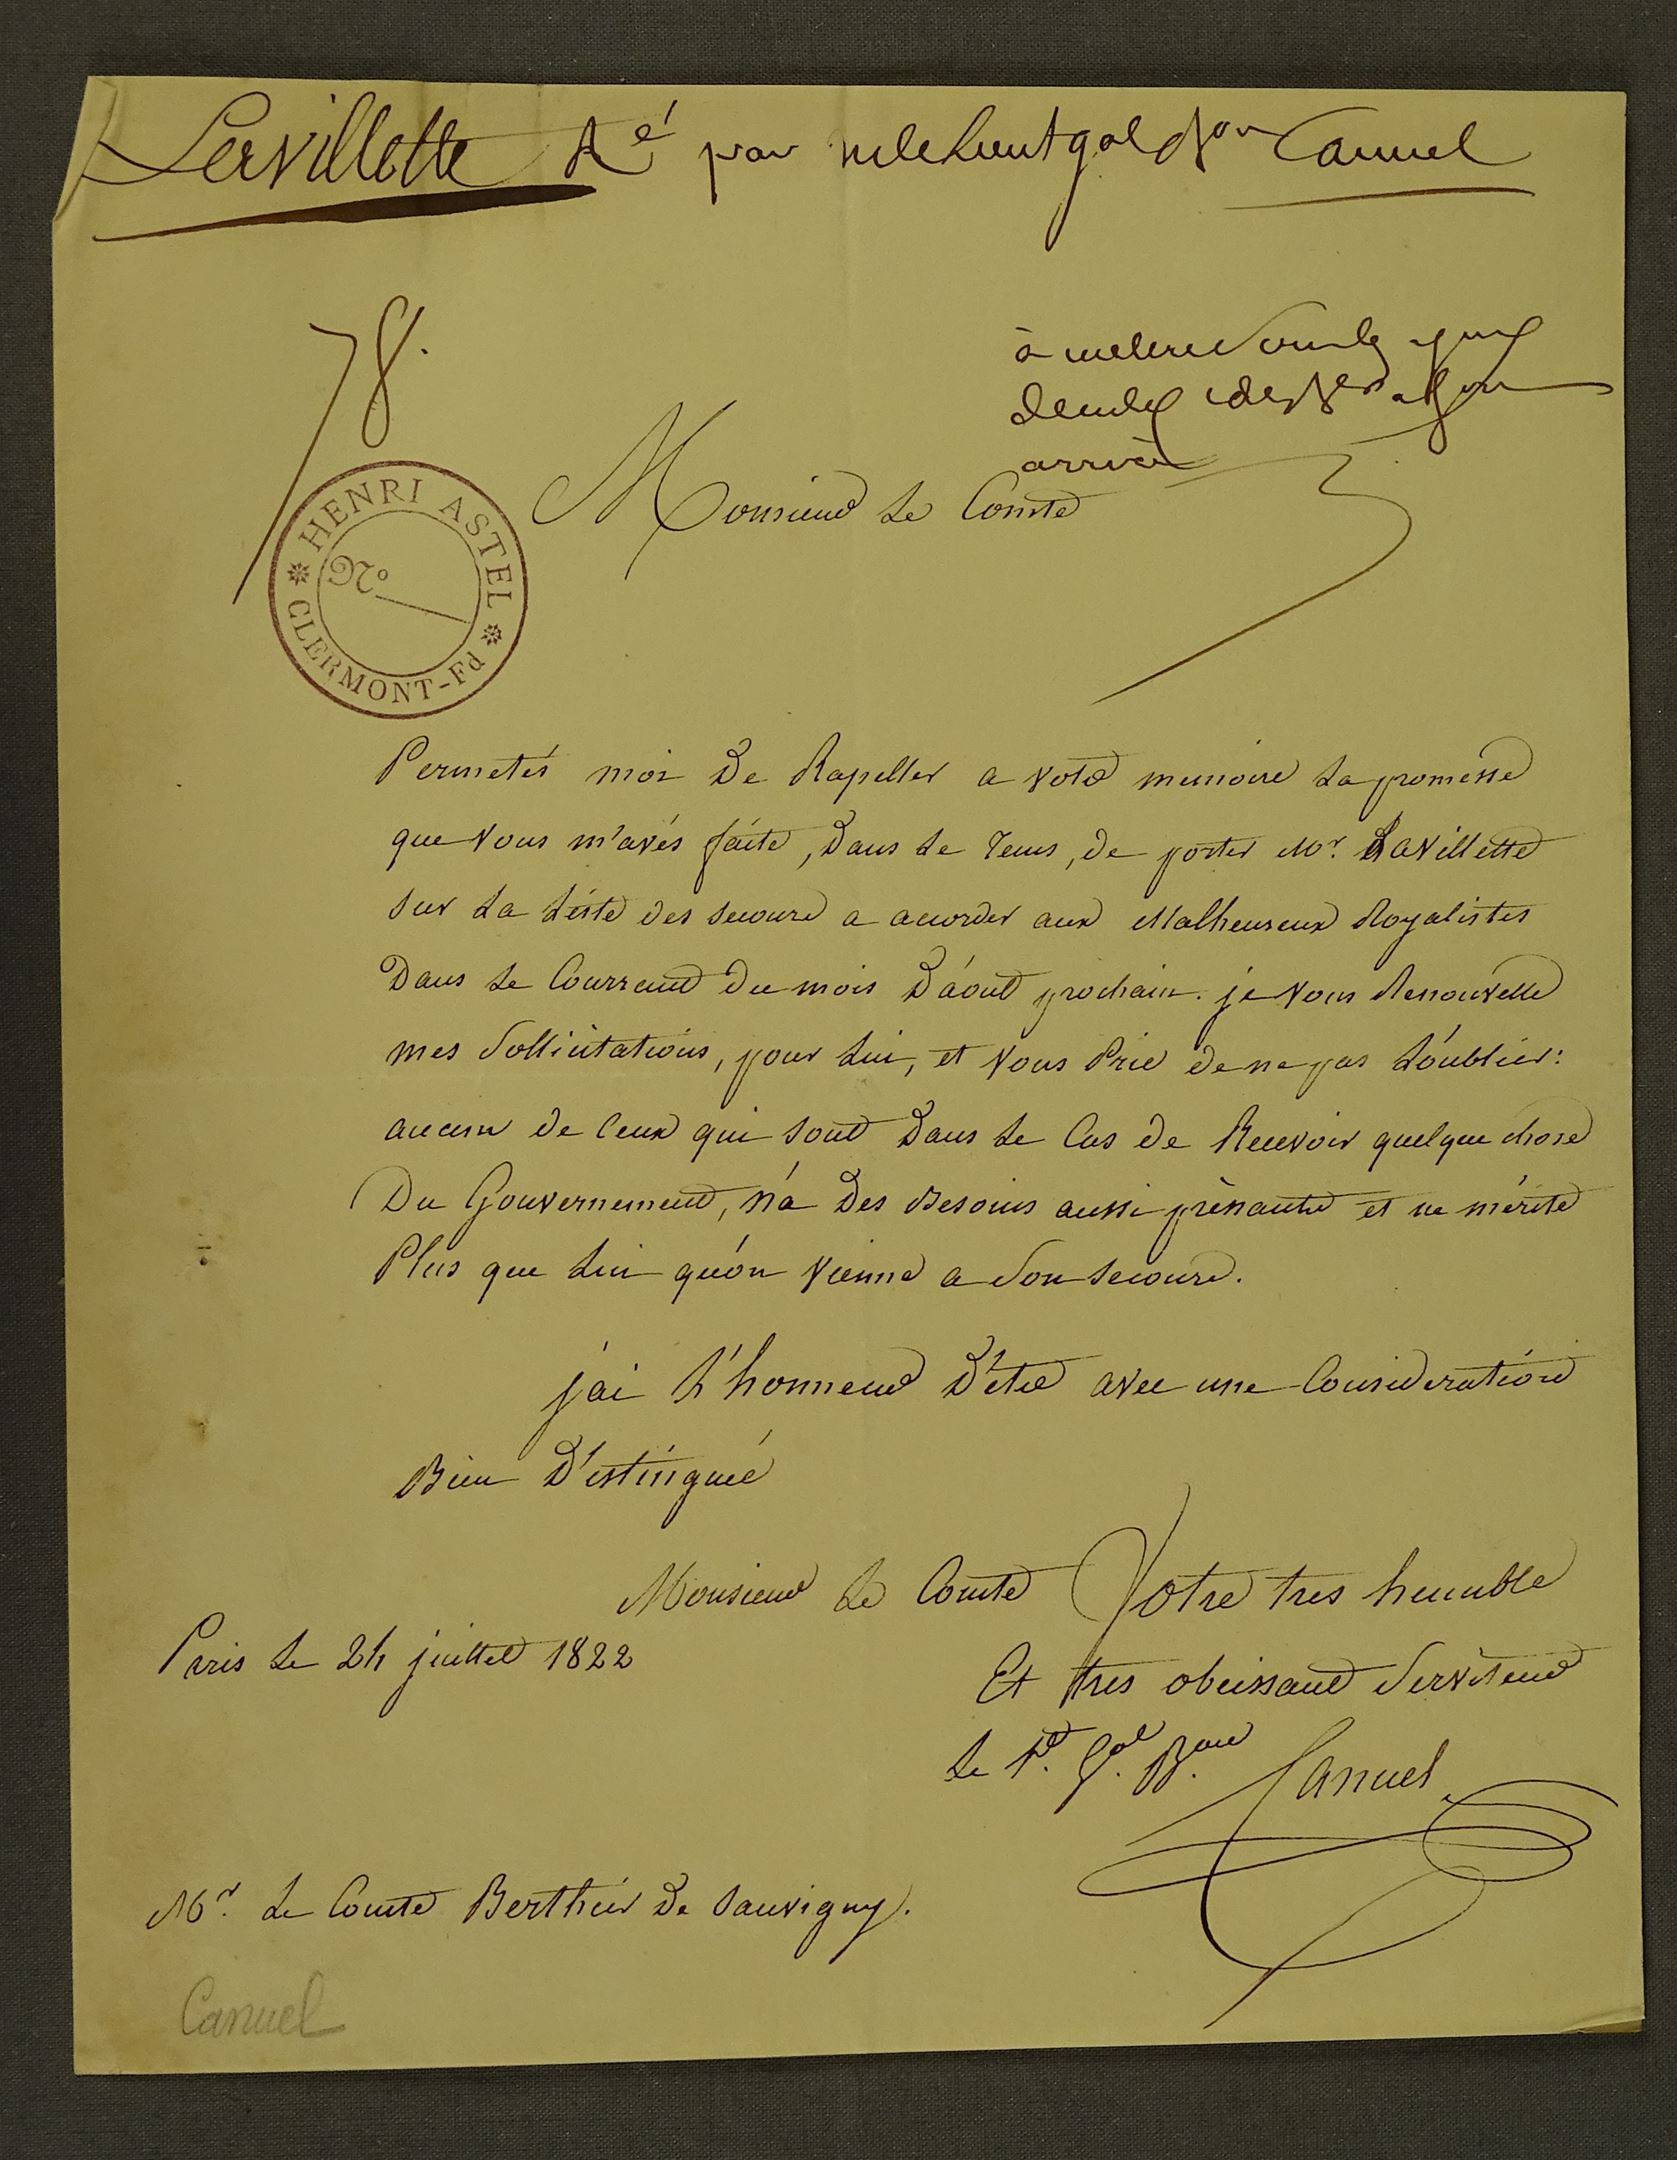 Lervillette Ré par Canuel
78.
à
arrivé
HENRI ASTEL
N°
CLERMONT-Fd
Monsieur Le Comte
Permetés moi De Rapeller a votre memoire La promesse
que vous m'avés faite, Dans Le Tems, de porter Mr. Lavillette
sur La Liste des secours a acorder aux Malheureux Royalistes
Dans Le Courrant Du mois D'août prochain. je vous Renouvelle
mes Sollicitations, pour Lui, et vous Prie de ne pas L'oublier:
aucun de Ceux qui sont Dans Le Cas de Recevoir quelque chose
Du Gouvernement, n'a Des Besoins aussi prèssants et ne mérite
Plus que Lui qu'on vienne a Son secours.
j'ai L'honneur D'etre avec une Consideration
Bien D'estinguée
Monsieur Le Comte Votre tres humble
Et tres obeissant Serviteur
Paris Le 24 juillet 1822
Le Lt. Gal. Bon Canuel
Mr. Le Comte Berthier De Sauvigny.
Canuel